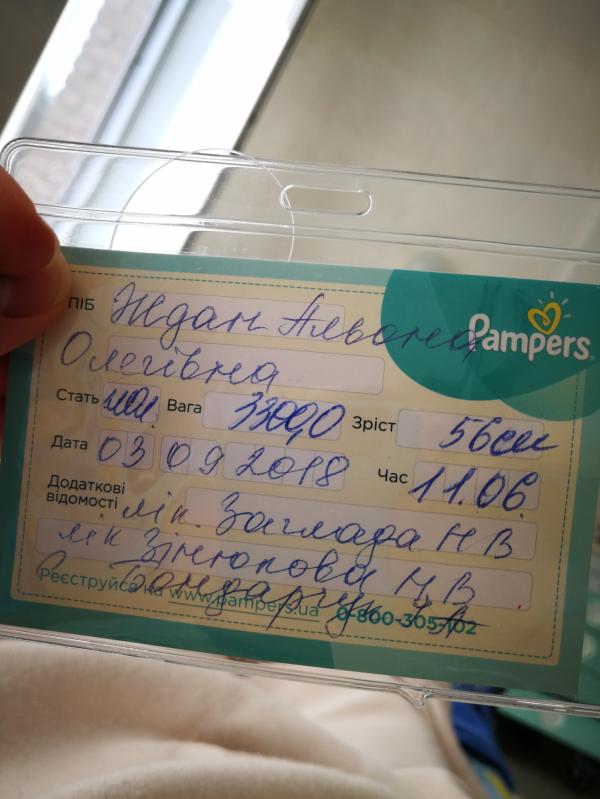 Pampers
ПІБ Ждан Альона
Олегівна
Стать Вага 3300,0 Зріст 56см
Дата 03 09 2018 Час 11.06
Додаткові
відомості лік. Заглада Н В
лік Зінюкова Н. В
Бондарчук
Реєструйся на www.pampers.ua 0-800-305-102